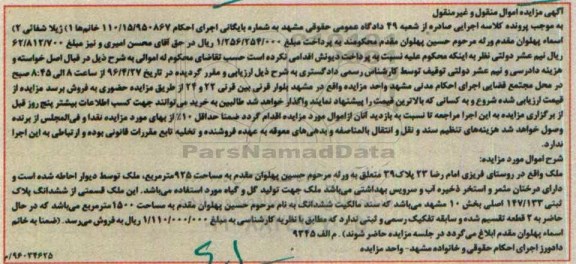 آگهی مزایده اموال منقول و غیرمنقول
به موجب پرونده کلاسه اجرایی صادره از شعبه ۴۹ دادگاه عمومی حقوقی مشهد به شماره بایگانی اجرای احکام ۱۱۰/۱۵/۹۵۰۸۶۷ خانم‌ها ۱) ژیلا شفائی ۲)
اسماء پهلوان مقدم ورثه مرحوم حسین پهلوان مقدم محکومند به پرداخت مبلغ ۱/۲۵۶/۲۵۴/۰۰۰ ریال در حق آقای محسن امیری و نیز مبلغ ۶۲/۸۱۲/۷۰۰
ریال نیم عشر دولتی نظر به اینکه محکوم علیه نسبت به پرداخت دیونش اقدامی نکرده است حسب تقاضای محکوم له اموالی به شرح ذیل در قبال اصل خواسته و
هزینه دادرسی و نیم عشر دولتی توقیف توسط کارشناس رسمی دادگستری به شرح ذیل ارزیابی و مقرر گردیده در تاریخ ۹۶/۴/۲۷ از ساعت ۸ الی ۸:۴۵ صبح
در محل مجتمع قضایی اجرای احکام مدنی مشهد واحد مزایده واقع در مشهد بلوار قرنی بین قرنی ۲۲ و ۲۴ از طریق مزایده حضوری به فروش برسد مزایده از
قیمت ارزیابی شده شروع و به کسانی که بالاترین قیمت را پیشنهاد نمایند واگذار خواهد شد طالبین به خرید می‌توانند جهت کسب اطلاعات بیشتر پنج روز قبل
از برگزاری مزایده به این اجرا مراجعه تا نسبت به بازدید آنان ازاموال مورد مزایده اقدام گردد ضمنا حداقل ۱۰٪ از بهای مورد مزایده نقدا و فی‌المجلس از برنده
وصول خواهد شد هزینه‌های تنظیم سند و نقل و انتقال بالمناصفه و بدهی‌های معوقه به عهده فروشنده و تخلیه تابع مقررات قانونی بوده و ارتباطی به این اجرا
ندارد.
شرح اموال مورد مزایده:
ملک واقع در روستای فریزی امام رضا ۲۳ پلاک ۳۹ متعلق به ورثه مرحوم حسین پهلوان مقدم به مساحت ۹۲۵ مترمربع، ملک توسط دیوار احاطه شده است و
دارای درختان مثمر و استخر ذخیره آب و سرویس بهداشتی می‌باشد ملک جهت تولید گل و گیاه مورد استفاده می‌باشد. این ملک قسمتی از ششدانگ پلاک
ثبتی ۱۴۷/۱۳۳ اصلی بخش ۱۰ مشهد می‌باشد که سند مالکیت ششدانگ به نام مرحوم حسین پهلوان مقدم به مساحت ۱۵۰۰ مترمربع می‌باشد که در حال
حاضر به ۲ قطعه تقسیم شده و سابقه تفکیک رسمی و ثبتی ندارد که مطابق با نظریه کارشناسی به مبلغ ۱/۱۱۰/۰۰۰/۰۰۰ ریال به فروش می‌رسد. (ضمنا به خانم
اسماء پهلوان مقدم ابلاغ می گردد در جلسه مزایده حاضر شوند). م الف ۹۳۴۵
دادورز اجرای احکام حقوقی و خانواده مشهد- واحد مزایده
۹۶۰۳۴۶۲۵/م
ParsNamadData